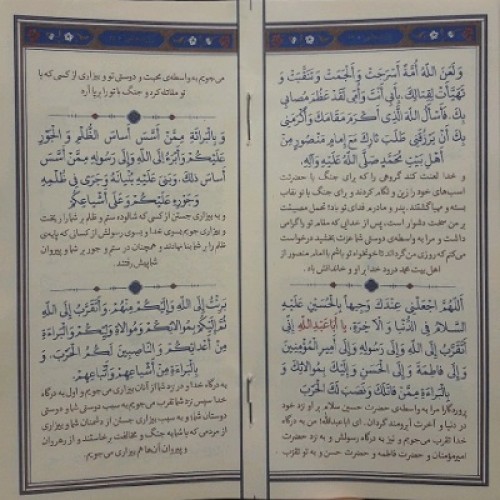 وَ لَعَنَ اللّٰهُ أُمَّةً أَسْرَجَتْ وَ أَلْجَمَتْ وَ تَنَقَّبَتْ وَ
تَهَيَّأَتْ لِقِتَالِكَ، بِأَبِي أَنْتَ وَ أُمِّي لَقَدْ عَظُمَ مُصَابِي
بِكَ، فَأَسْأَلُ اللّٰهَ الَّذِي أَكْرَمَ مَقَامَكَ وَ أَكْرَمَنِي
بِكَ أَنْ يَرْزُقَنِي طَلَبَ ثَارِكَ مَعَ إِمَامٍ مَنْصُورٍ مِنْ
أَهْلِ بَيْتِ مُحَمَّدٍ صَلَّى اللّٰهُ عَلَيْهِ وَ آلِهِ،
و خدا لعنت کند گروهی را که برای جنگ با حضرتت
اسب‌های خود را زین و لگام کردند و برای جنگ با تو نقاب
بسته و مهیا گشتند. پدر و مادرم فدای تو باد؛ تحمل مصیبتت
بر من سخت دشوار است، پس از خدایی که مقام تو را گرامی
داشت و مرا به واسطه‌ی دوستی شما عزت بخشید درخواست
می‌کنم که روزی من گرداند تا خونخواه تو باشم با امام منصور از
اهل بیت محمد درود خدا بر او و خاندانش باد.
اَللّٰهُمَّ اجْعَلْنِي عِنْدَكَ وَجِيهًا بِالْحُسَيْنِ عَلَيْهِ
السَّلَامُ فِي الدُّنْيَا وَ الْآخِرَةِ، يَا أَبَا عَبْدِاللّٰهِ إِنِّي
أَتَقَرَّبُ إِلَى اللّٰهِ وَ إِلَى رَسُولِهِ وَ إِلَى أَمِيرِ الْمُؤْمِنِينَ
وَ إِلَى فَاطِمَةَ وَ إِلَى الْحَسَنِ وَ إِلَيْكَ بِمُوَالَاتِكَ وَ
بِالْبَرَاءَةِ مِمَّنْ قَاتَلَكَ وَ نَصَبَ لَكَ الْحَرْبَ
پروردگارا مرا به واسطه‌ی حضرت حسین سلام بر او نزد خود
در دنیا و آخرت آبرومند گردان. ای اباعبدالله! من به درگاه
خدا تقرب می‌جویم و نیز به درگاه رسولش و به نزد حضرت
امیرمؤمنان و حضرت فاطمه و حضرت حسن و به تو تقرب
می‌جویم به واسطه‌ی محبت و دوستی تو و بیزاری از کسی که با
تو مقاتله کرد و جنگ با تو را برپا آرد
وَ بِالْبَرَاءَةِ مِمَّنْ أَسَّسَ أَسَاسَ الظُّلْمِ وَ الْجَوْرِ
عَلَيْكُمْ وَ أَبْرَءُ إِلَى اللّٰهِ وَ إِلَى رَسُولِهِ مِمَّنْ أَسَّسَ
أَسَاسَ ذٰلِكَ، وَ بَنَى عَلَيْهِ بُنْيَانَهُ وَ جَرَى فِي ظُلْمِهِ
وَ جَوْرِهِ عَلَيْكُمْ وَ عَلَى أَشْيَاعِكُمْ
و به بیزاری جستن از کسی که شالوده ستم و ظلم بر شما را ریخت
و بیزاری جویم بسوی خدا و بسوی رسولش از کسانی که پایه‌ی
ظلم را بر شما بنا نهادند و همچنان در ستم و جور بر شما و پیروان
شما پیش رفتند.
بَرِئْتُ إِلَى اللّٰهِ وَ إِلَيْكُمْ مِنْهُمْ، وَ أَتَقَرَّبُ إِلَى اللّٰهِ
ثُمَّ إِلَيْكُمْ بِمُوَالَاتِكُمْ وَ مُوَالَاةِ وَلِيِّكُمْ وَ الْبَرَاءَةِ
مِنْ أَعْدَائِكُمْ وَ النَّاصِبِينَ لَكُمُ الْحَرْبَ، وَ
بِالْبَرَاءَةِ مِنْ أَشْيَاعِهِمْ وَ أَتْبَاعِهِمْ،
به درگاه خدا و در نزد شما از آنان بیزاری می‌جویم و اول به درگاه
خدا سپس نزد شما تقرب می‌جویم به سبب دوستی شما و دوستی
دوستان شما؛ و به سبب بیزاری جستن از دشمنان شما و بیزاری
از مردمی که با شما به جنگ و مخالفت برخاستند و از رهروان
و پیروان آن‌ها هم بیزاری می‌جویم.